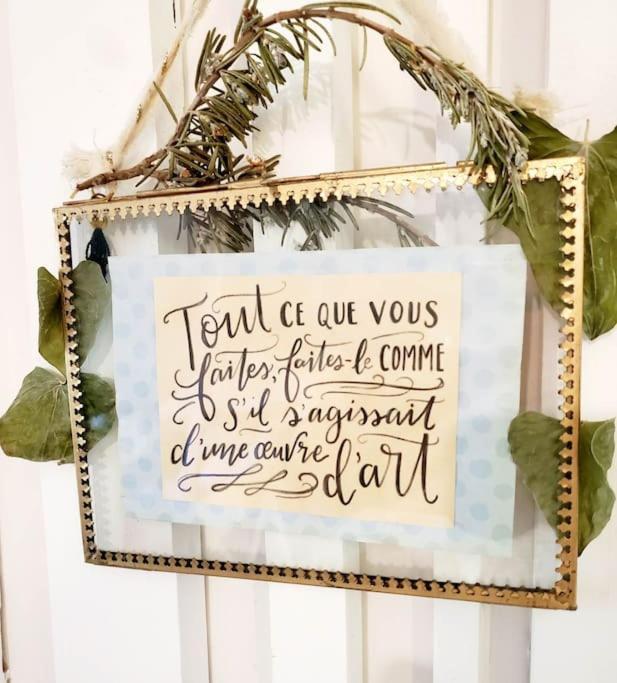 Tout CE QUE VOUS
faites, faites-le COMME
s'il s'agissait
d'une œuvre d'art